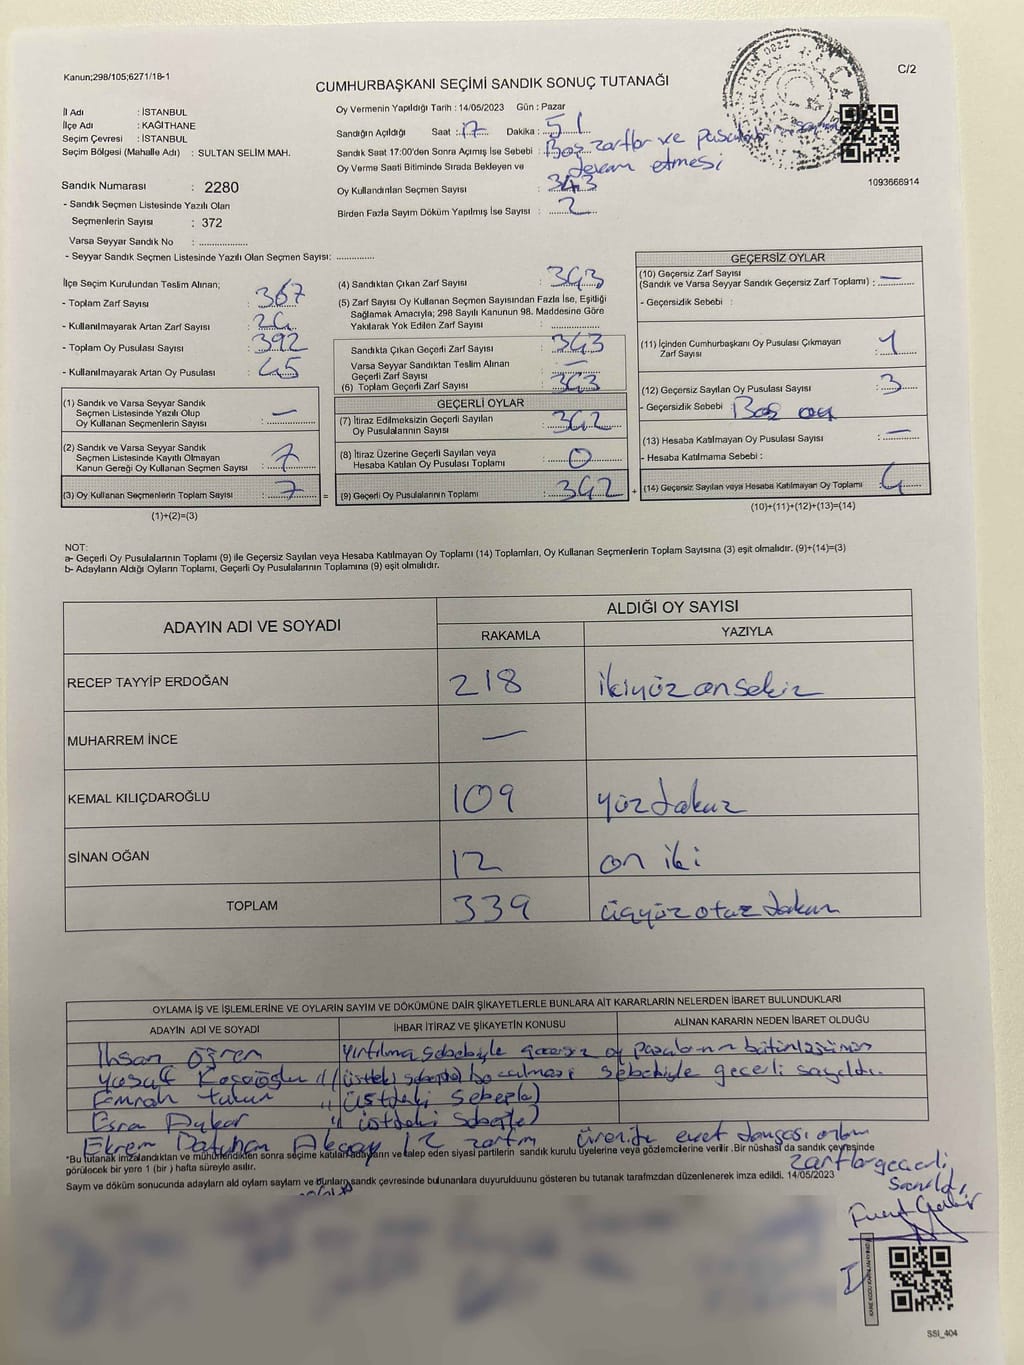 Kanun;298/105;6271/18-1
C/2
CUMHURBAŞKANI SEÇİMİ SANDIK SONUÇ TUTANAĞI
İl Adı : İSTANBUL
İlçe Adı : KAĞITHANE
Seçim Çevresi : İSTANBUL
Seçim Bölgesi (Mahalle Adı) : SULTAN SELİM MAH.
Sandık Numarası : 2280
- Sandık Seçmen Listesinde Yazılı Olan
Seçmenlerin Sayısı : 372
Varsa Seyyar Sandık No : ....................
- Seyyar Sandık Seçmen Listesinde Yazılı Olan Seçmen Sayısı: ..............
Oy Vermenin Yapıldığı Tarih : 14/05/2023 Gün : Pazar
Sandığın Açıldığı Saat : 17 Dakika : 51
Sandık Saat 17:00'den Sonra Açımış İse Sebebi : Boş zarflar ve
Oy Verme Saati Bitiminde Sırada Bekleyen ve devam etmesi
Oy Kullandırılan Seçmen Sayısı : 343
Birden Fazla Sayım Döküm Yapılmış İse Sayısı : 2
1093666914
İlçe Seçim Kurulundan Teslim Alınan;
- Toplam Zarf Sayısı : 367
- Kullanılmayarak Artan Zarf Sayısı : 24
- Toplam Oy Pusulası Sayısı : 392
- Kullanılmayarak Artan Oy Pusulası : 45
(1) Sandık ve Varsa Seyyar Sandık
Seçmen Listesinde Yazılı Olup
Oy Kullanan Seçmenlerin Sayısı : —
(2) Sandık ve Varsa Seyyar Sandık
Seçmen Listesinde Kayıtlı Olmayan
Kanun Gereği Oy Kullanan Seçmen Sayısı : 7
(3) Oy Kullanan Seçmenlerin Toplam Sayısı : 7 =
(1)+(2)=(3)
(4) Sandıktan Çıkan Zarf Sayısı : 343
(5) Zarf Sayısı Oy Kullanan Seçmen Sayısından Fazla İse, Eşitliği
Sağlamak Amacıyla; 298 Sayılı Kanunun 98. Maddesine Göre
Yakılarak Yok Edilen Zarf Sayısı : ....................
Sandıkta Çıkan Geçerli Zarf Sayısı : 343
Varsa Seyyar Sandıktan Teslim Alınan
Geçerli Zarf Sayısı : —
(6) Toplam Geçerli Zarf Sayısı : 343
GEÇERLİ OYLAR
(7) İtiraz Edilmeksizin Geçerli Sayılan
Oy Pusulalarının Sayısı : 342
(8) İtiraz Üzerine Geçerli Sayılan veya
Hesaba Katılan Oy Pusulası Toplamı : 0
(9) Geçerli Oy Pusulalarının Toplamı : 342 +
GEÇERSİZ OYLAR
(10) Geçersiz Zarf Sayısı
(Sandık ve Varsa Seyyar Sandık Geçersiz Zarf Toplamı) : —
- Geçersizlik Sebebi :
(11) İçinden Cumhurbaşkanı Oy Pusulası Çıkmayan
Zarf Sayısı : 1
(12) Geçersiz Sayılan Oy Pusulası Sayısı : 3
- Geçersizlik Sebebi : Boş oy
(13) Hesaba Katılmayan Oy Pusulası Sayısı : —
- Hesaba Katılmama Sebebi :
(14) Geçersiz Sayılan veya Hesaba Katılmayan Oy Toplamı : 4
(10)+(11)+(12)+(13)=(14)
NOT:
a- Geçerli Oy Pusulalarının Toplamı (9) ile Geçersiz Sayılan veya Hesaba Katılmayan Oy Toplamı (14) Toplamları, Oy Kullanan Seçmenlerin Toplam Sayısına (3) eşit olmalıdır. (9)+(14)=(3)
b- Adayların Aldığı Oyların Toplamı, Geçerli Oy Pusulalarının Toplamına (9) eşit olmalıdır.
ADAYIN ADI VE SOYADI
ALDIĞI OY SAYISI
RAKAMLA YAZIYLA
RECEP TAYYİP ERDOĞAN 218 ikiyüz on sekiz
MUHARREM İNCE —
KEMAL KILIÇDAROĞLU 109 yüz dokuz
SİNAN OĞAN 12 on iki
TOPLAM 339 üçyüz otuz dokuz
OYLAMA İŞ VE İŞLEMLERİNE VE OYLARIN SAYIM VE DÖKÜMÜNE DAİR ŞİKAYETLERLE BUNLARA AİT KARARLARIN NELERDEN İBARET BULUNDUKLARI
ADAYIN ADI VE SOYADI İHBAR İTİRAZ VE ŞİKAYETİN KONUSU ALINAN KARARIN NEDEN İBARET OLDUĞU
İhsan Öğren yırtılma sebebiyle geçersiz oy
Yusuf sebebiyle geçerli sayıldı.
Emrah Tutun " (üstdeki sebeple)
Esra " (üstdeki sebeple)
Ekrem Batuhan Akçay 12 zarfın üzerinde evet damgası olan
zarflar geçerli
sayıldı.
*Bu tutanak imzalandıktan ve mühürlendikten sonra seçime katılan adayların ve talep eden siyasi partilerin sandık kurulu üyelerine veya gözlemcilerine verilir. Bir nüshası da sandık çevresinde
görülecek bir yere 1 (bir) hafta süreyle asılır.
Sayım ve döküm sonucunda adayların ald oyların saylam ve bunların sandık çevresinde bulunanlara duyurulduunu gösteren bu tutanak tarafmzdan düzenlenerek imza edildi. 14/05/2023
SSI_404